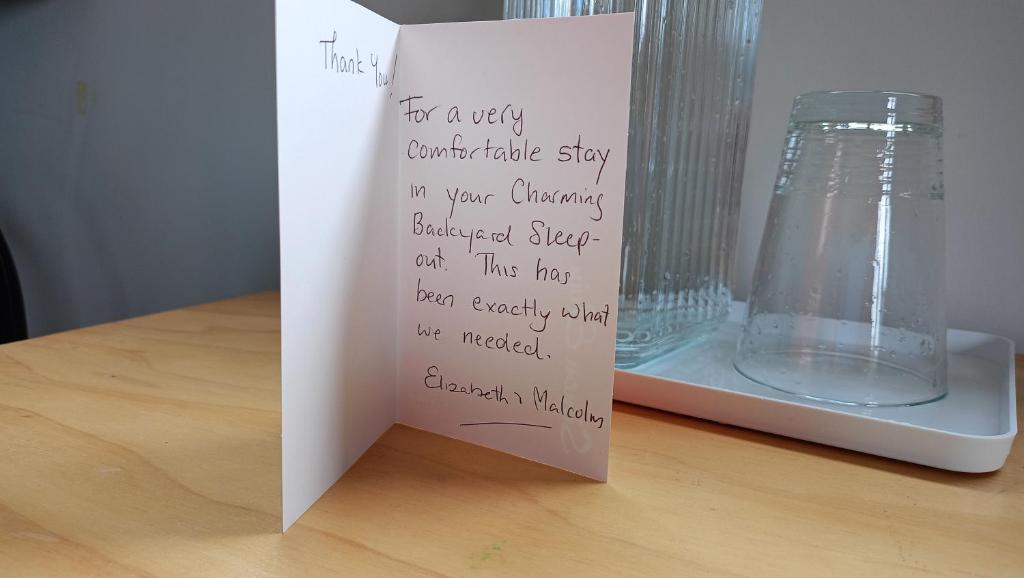 Thank You!
For a very
comfortable stay
in your Charming
Backyard Sleep-
out. This has
been exactly what
we needed.
Elizabeth & Malcolm